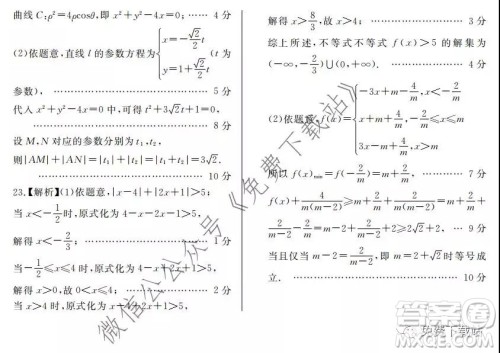 曲线 C:ρ²=4ρcosθ,即 x²+y²-4x=0; …… 4 分
(2)依题意,直线 l 的参数方程为{x=-√2/2 t, y=1+√2/2 t (t 为
参数), …… 5 分
代入 x²+y²-4x=0 中,可得 t²+3√2t+1=0,
…… 8 分
设 M,N 对应的参数分别为 t₁,t₂,
则|AM|+|AN|=|t₁|+|t₂|=|t₁+t₂|=3√2.
…… 10 分
23.【解析】(1)依题意,|x-4|+|2x+1|>5;
当 x<-1/2 时,原式化为 4-x-2x-1>5,
解得 x<-2/3; …… 1 分
当-1/2≤x≤4 时,原式化为 4-x+2x+1>5,
解得 x>0,故 0<x≤4; …… 2 分
当 x>4 时,原式化为 x-4+2x+1>5,
解得 x>8/3,故 x>4; …… 3 分
综上所述,不等式不等式 f(x)>5 的解集为
(-∞,-2/3)∪(0,+∞). …… 4 分
(2)依题意,f(x)={-3x+m-4/m, x<-2/m
-x+m, -2/m≤x≤m
所以 f(x)min=f(-2/m)=m+2/m, …… 7 分
…… 9 分
当且仅当 m-2=2/(m-2),即 m=2+√2 时等号成
立. …… 10 分
微信公众公众号《免费下载站》
答案圈
免费下载站